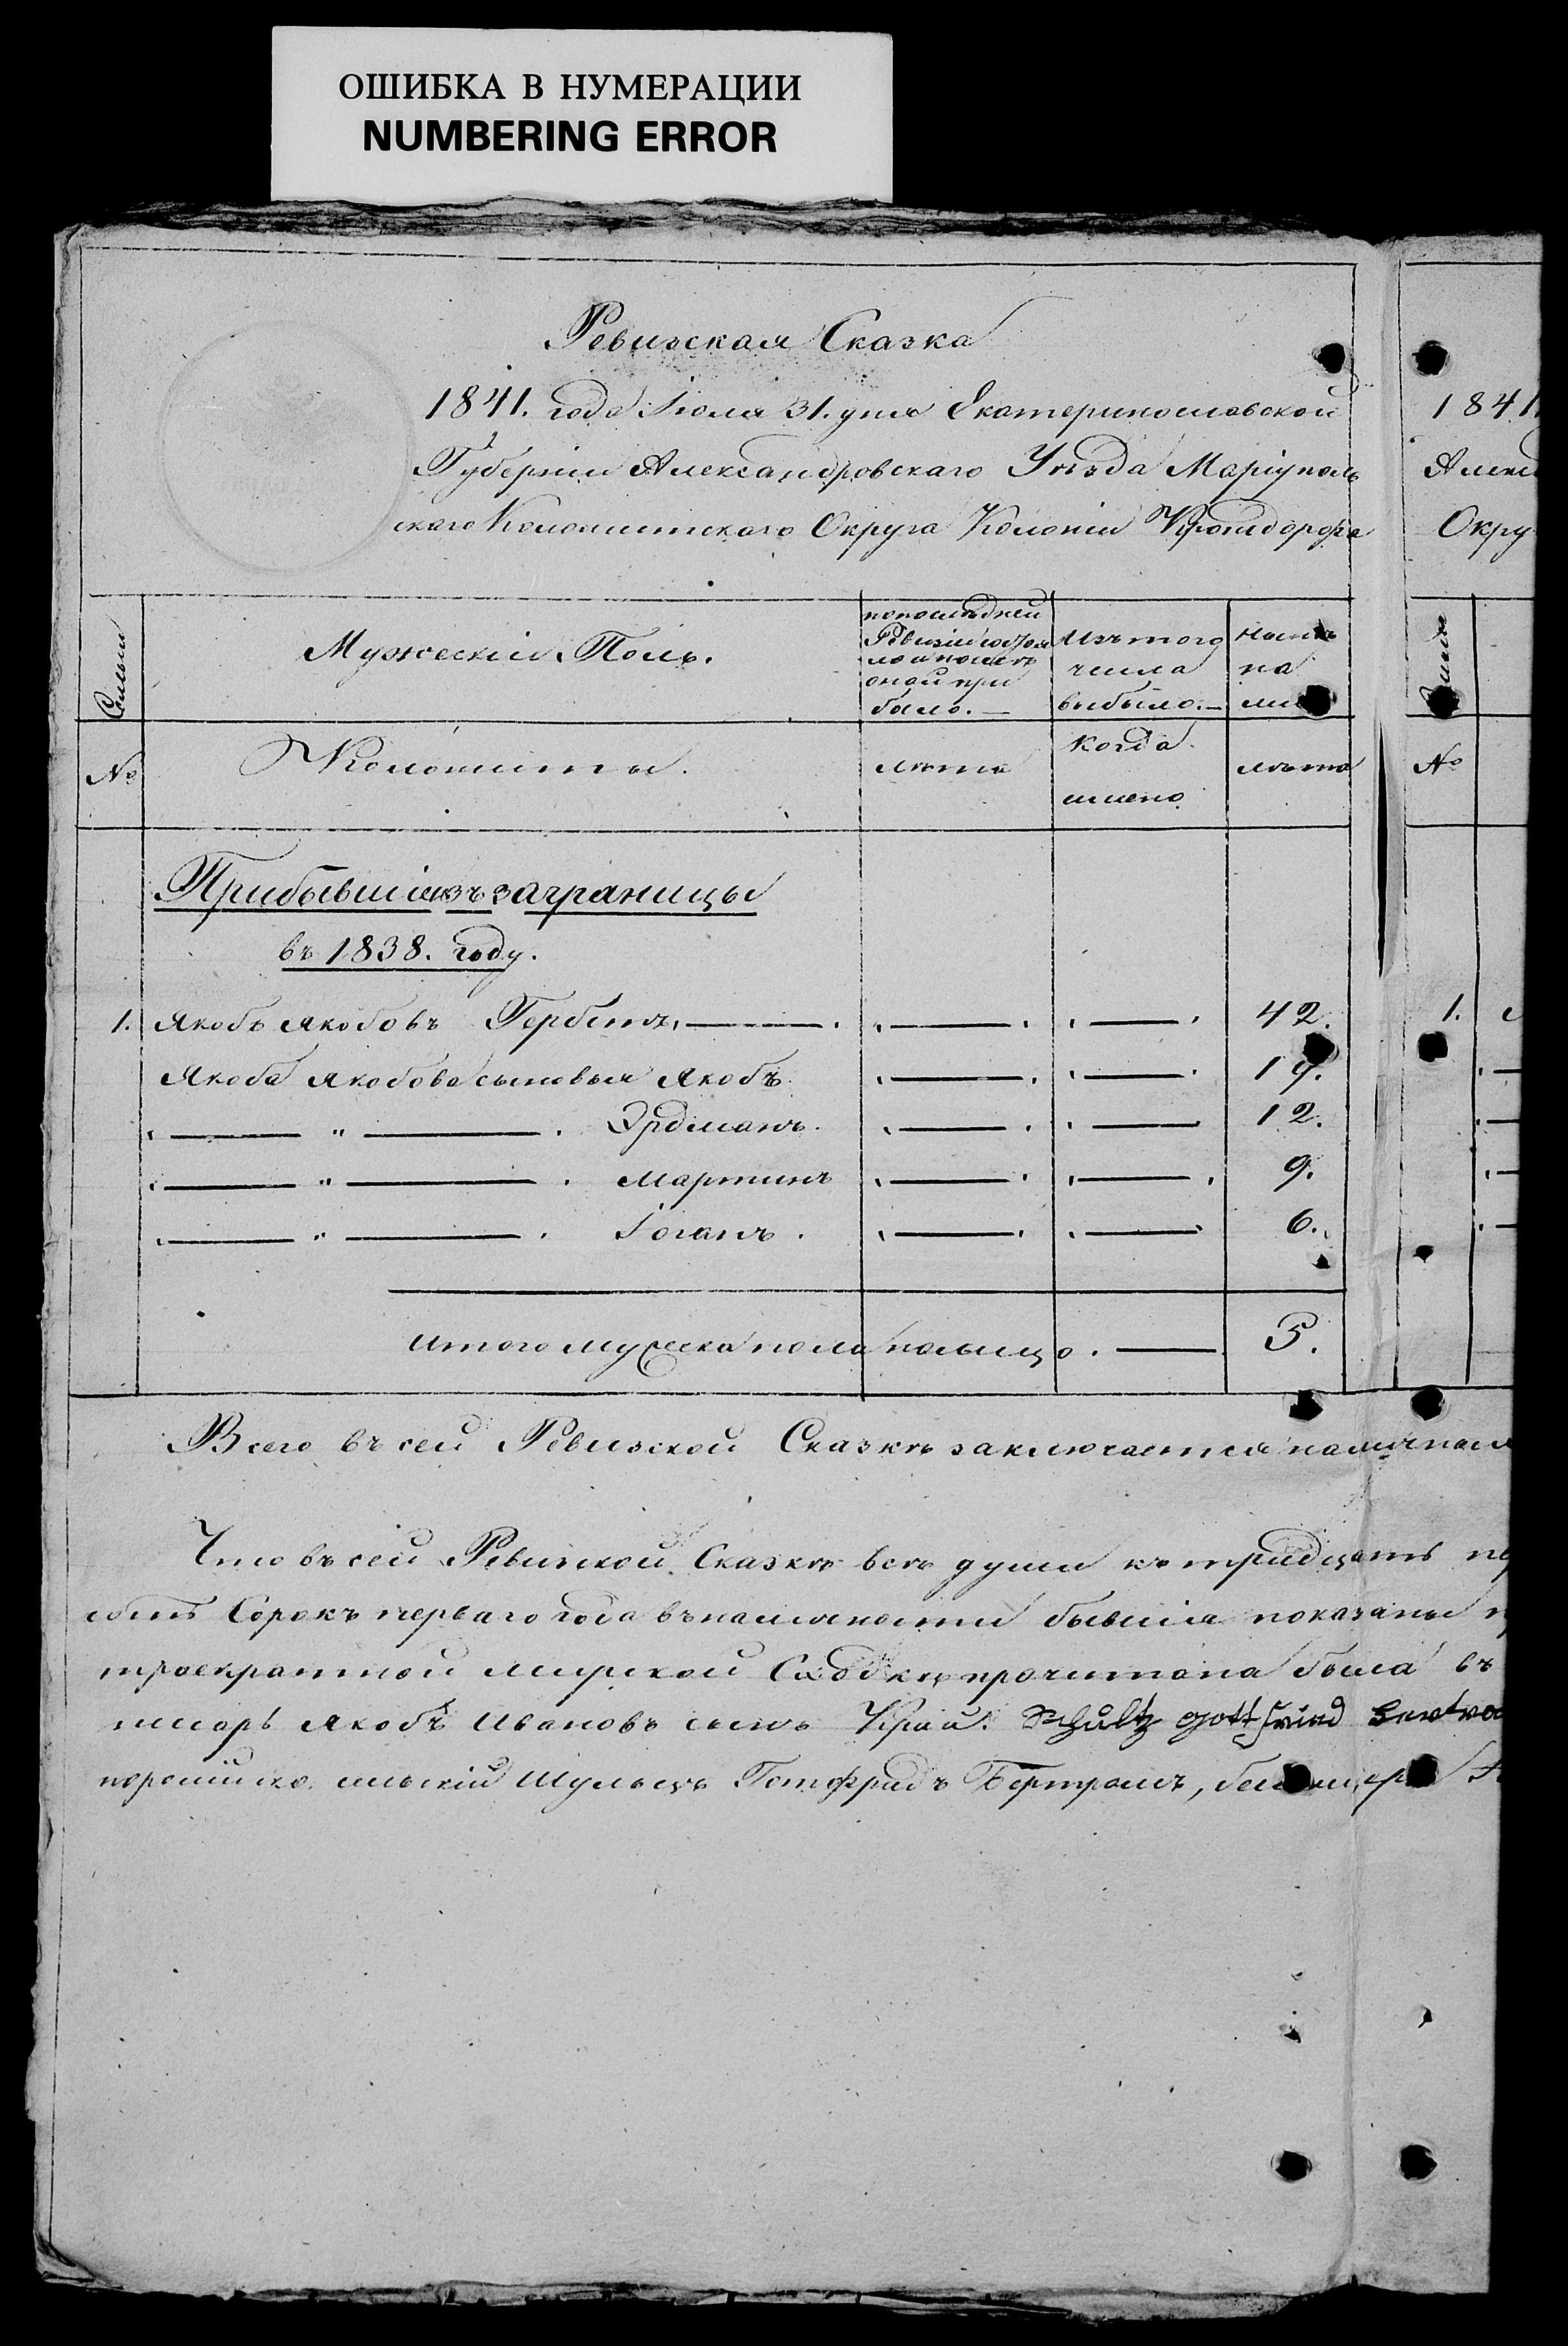 ОШИБКА В НУМЕРАЦИИ
NUMBERING ERROR
Ревизская Сказка
1841. года Іюля 31. дня Екатеринославской
Губерніи Александровскаго Уѣзда Маріуполь
скаго Колонистскаго Округа Колоніи Кронсдорфа
Семьи
Мужескій Полъ.
по последней
Ревизіи состоя
ло и после
оной при
было.—
Изъ того
числа
выбыло.—
Ныне
на
ли
№
Колонисты.
лѣта
когда
имено
лѣта
Прибывшіе изъ заграницы
въ 1838. году.
1. Якобъ Якобовъ Гербстъ, 42.
Якоба Якобова сыновья Якобъ 19.
" Эрдманъ. 12.
" Мартинъ 9.
" Іоганъ. 6.
Итого мужеска пола на лицо. 5.
Всего въ сей Ревизской Сказкѣ заключается
Что въ сей Ревизской Сказкѣ всѣ души къ тридцать
сотъ Сорокъ перваго года въ наличности бывшія показаны
троекратной мирской Сходкѣ прочитана была въ
писарь Якобъ Ивановъ сынъ Край. Schultz gottfried
Шульцъ Готфридъ Бертрамъ,
1841
Алекс
Окру
№
1.